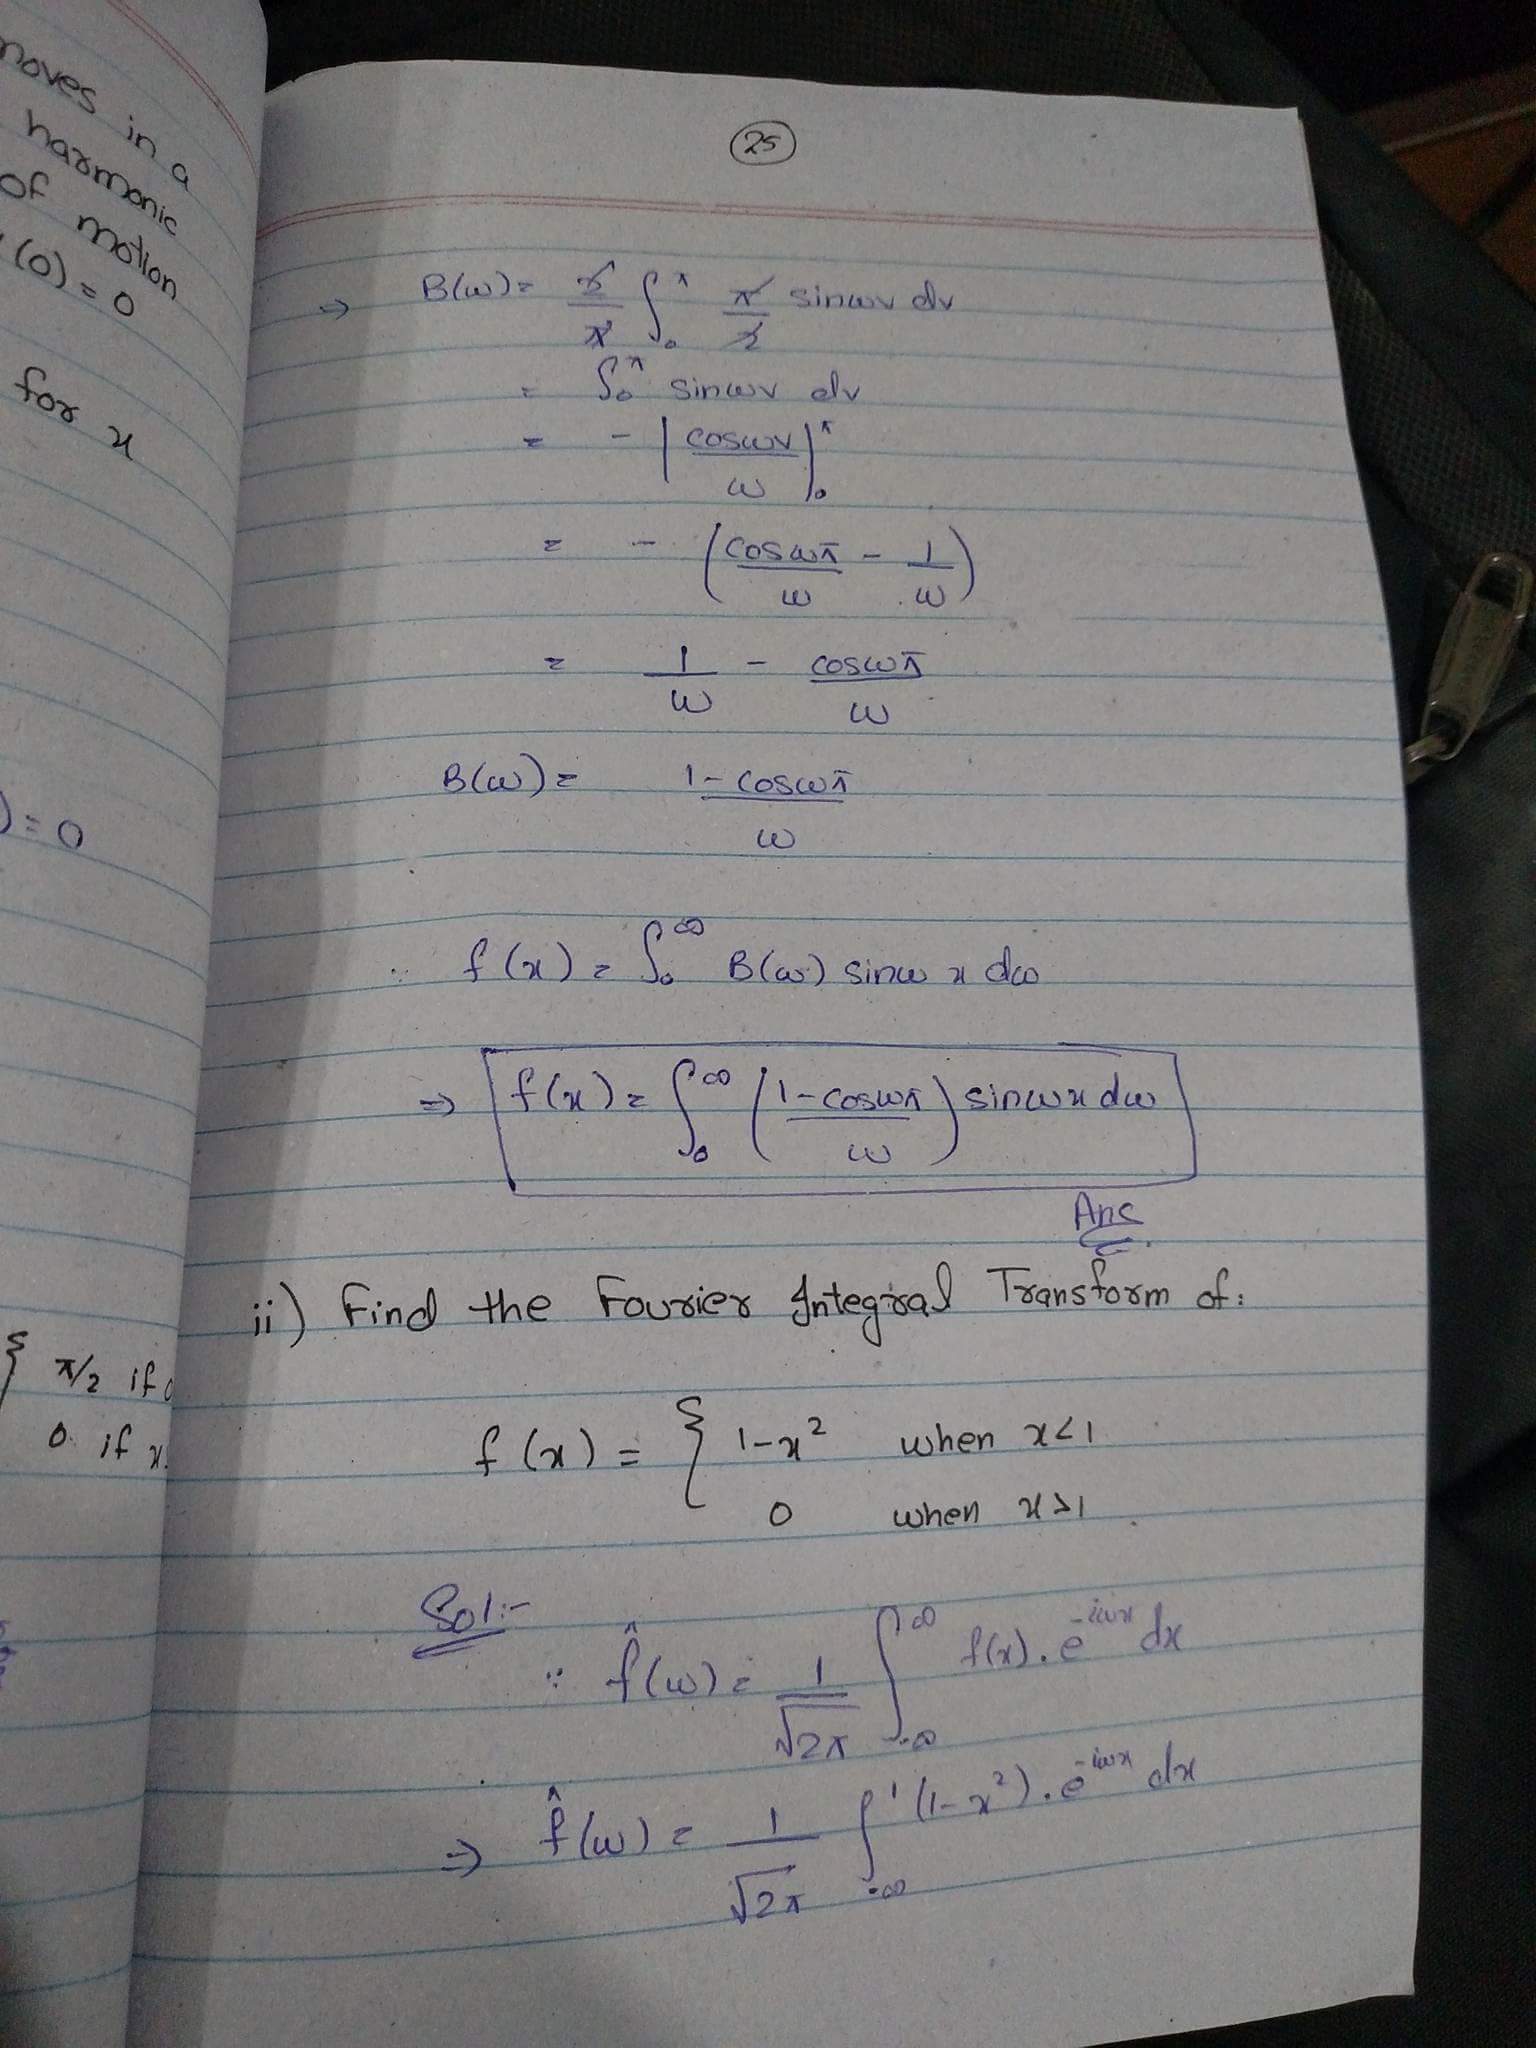 moves in a
harmonic
of motion
(0) = 0
for x
) = 0
{ π/2 if
0 if x
25
⇒ B(w) = 2/π ∫₀^π π/2 sinwv dv
= ∫₀^π sinwv dv
= - | coswv/w |₀^π
= - ( coswπ/w - 1/w )
= 1/w - coswπ/w
B(w) = 1 - coswπ / w
∵ f(x) = ∫₀^∞ B(w) sinw x dw
⇒ f(x) = ∫₀^∞ ( 1 - coswπ / w ) sinwx dw
Ans
ii) Find the Fourier Integral Transform of:
f(x) = { 1-x² when x<1
0 when x>1
Sol:-
∵ f̂(w) = 1/√2π ∫_-∞^∞ f(x) . e^-iwx dx
⇒ f̂(w) = 1/√2π ∫_-∞^1 (1-x²) . e^-iwx dx